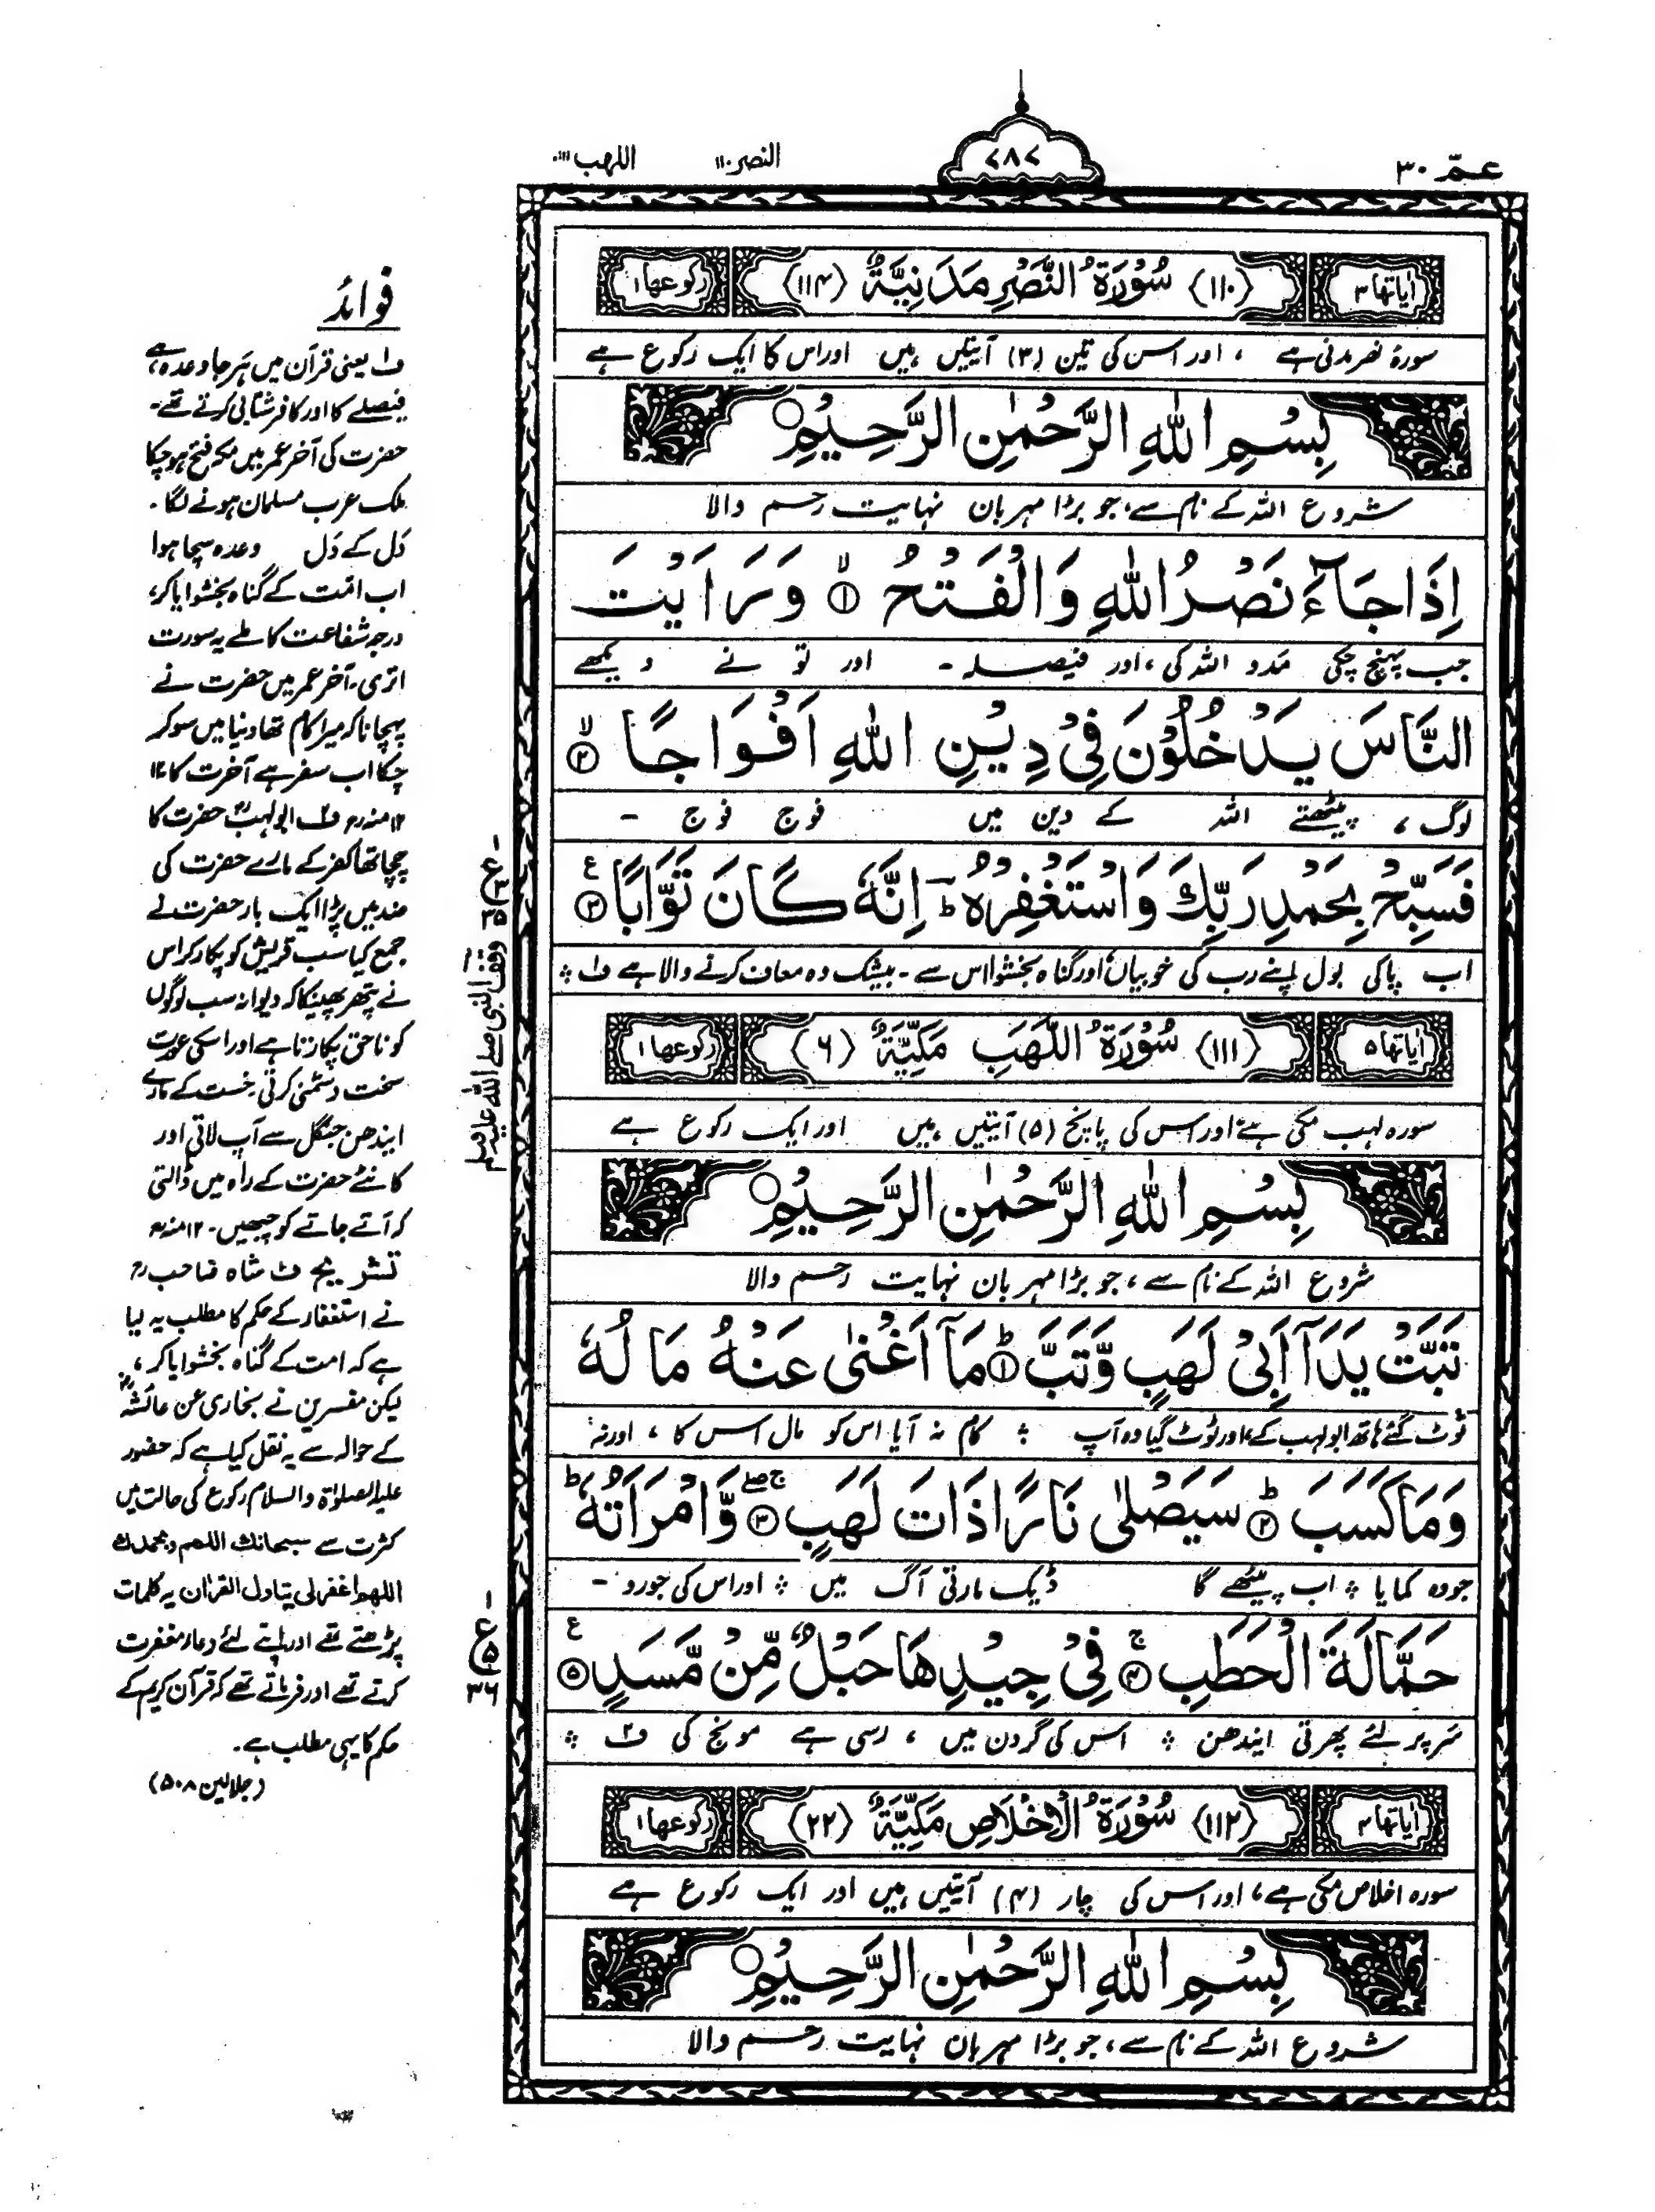 عمّ ۳۰
۷۸۷
النصر ۱۱۰
اللهب ۱۱۱
اٰیاتها ۳
(۱۱۰) سُوْرَةُ النَّصْرِ مَدَنِیَّةٌ (۱۱۴)
رکوعها ۱
سورۂ نصر مدنی ہے ، اور اس کی تین (۳) آیتیں ہیں اور اس کا ایک رکوع ہے
بِسْمِ اللّٰهِ الرَّحْمٰنِ الرَّحِیْمِ ○
شروع اللہ کے نام سے، جو بڑا مہربان نہایت رحم والا
اِذَا جَآءَ نَصْرُ اللّٰهِ وَالْفَتْحُ ۙ﴿۱﴾ وَرَاَیْتَ
جب پہنچ چکی مدد اللہ کی ، اور فیصلہ - اور تو نے دیکھے
النَّاسَ یَدْخُلُوْنَ فِیْ دِیْنِ اللّٰهِ اَفْوَاجًا ۙ﴿۲﴾
لوگ ، پیٹھتے اللہ کے دین میں فوج فوج -
فَسَبِّحْ بِحَمْدِ رَبِّكَ وَاسْتَغْفِرْهُ ؕ اِنَّهٗ كَانَ تَوَّابًا ﴿۳﴾ ع
اب پاکی بول اپنے رب کی خوبیاں اور گناہ بخشوا اس سے - بیشک وہ معاف کرنے والا ہے ف۱ ؞
اٰیاتها ۵
(۱۱۱) سُوْرَةُ اللَّهَبِ مَكِّیَّةٌ (۶)
رکوعها ۱
سورہ لہب مکی ہے اور اس کی پانچ (۵) آیتیں ہیں اور ایک رکوع ہے
بِسْمِ اللّٰهِ الرَّحْمٰنِ الرَّحِیْمِ ○
شروع اللہ کے نام سے ، جو بڑا مہربان نہایت رحم والا
تَبَّتْ یَدَاۤ اَبِیْ لَهَبٍ وَّتَبَّ ؕ﴿۱﴾ مَاۤ اَغْنٰی عَنْهُ مَالُهٗ
ٹوٹ گئے ہاتھ ابو لہب کے، اور ٹوٹ گیا وہ آپ ؞ کام نہ آیا اس کو مال اس کا ، اور نہ
وَمَا كَسَبَ ؕ﴿۲﴾ سَیَصْلٰی نَارًا ذَاتَ لَهَبٍ ۚۖ﴿۳﴾ وَّامْرَاَتُهٗ ؕ
جو وہ کمایا ؞ اب پیٹھے گا ڈیک مارتی آگ میں ؞ اور اس کی جورو -
حَمَّالَةَ الْحَطَبِ ۚ﴿۴﴾ فِیْ جِیْدِهَا حَبْلٌ مِّنْ مَّسَدٍ ﴿۵﴾ ع
سر پر لئے پھرتی ایندھن ؞ اس کی گردن میں ، رسی ہے مونج کی ف۲ ؞
اٰیاتها ۴
(۱۱۲) سُوْرَةُ الْاِخْلَاصِ مَكِّیَّةٌ (۲۲)
رکوعها ۱
سورہ اخلاص مکی ہے ، اور اس کی چار (۴) آیتیں ہیں اور ایک رکوع ہے
بِسْمِ اللّٰهِ الرَّحْمٰنِ الرَّحِیْمِ ○
شروع اللہ کے نام سے ، جو بڑا مہربان نہایت رحم والا
ع ۳ ۳۵
وقف النبی صلے اللہ علیہ وسلم
ع ۵ ۳۶
فوائد
ف۱ یعنی قرآن میں ہر جا وعدہ ہے،
فیصلے کا اور کافر شتابی کرتے تھے۔
حضرت کی آخر عمر میں مکہ فتح ہو چکا
ملک عرب مسلمان ہونے لگا ۔
دَل کے دَل وعدہ سچا ہوا
اب امت کے گناہ بخشوایا کر،
درجہ شفاعت کا ملے یہ سورت
اتری۔ آخر عمر میں حضرت نے
پہچانا کہ میرا کام تھا دنیا میں سو کر
چکا اب سفر ہے آخرت کا ۱۲
۱۲ منہ رح ف۲ ابو لہب حضرت کا
چچا تھا کفر کے مارے حضرت کی
ضد میں پڑا ایک بار حضرت نے
جمع کیا سب قریش کو پکار کر اس
نے پتھر پھینکا کہ دیوانہ سب لوگوں
کو ناحق پکارتا ہے اور اسکی عورت
سخت دشمنی کرتی۔ خست کے مارے
ایندھن جنگل سے آپ لاتی اور
کانٹے حضرت کے راہ میں ڈالتی
کہ آتے جاتے کو چبھیں ۔ ۱۲ منہ رح
تشریح ف۱ شاہ صاحب رح
نے استغفار کے حکم کا مطلب یہ لیا
ہے کہ امت کے گناہ بخشوایا کر ،
لیکن مفسرین نے بخاری عن عائشہ رض
کے حوالہ سے یہ نقل کیا ہے کہ حضور
علیہ الصلوٰۃ والسلام رکوع کی حالت میں
کثرت سے سبحانك اللهم وبحمدك
اللهم اغفرلی یتاول القرآن یہ کلمات
پڑھتے تھے اور اپنے لئے دعاء مغفرت
کرتے تھے اور فرماتے تھے کہ قرآن کریم کے
حکم کا یہی مطلب ہے ۔
(جلالین ۵۰۸)